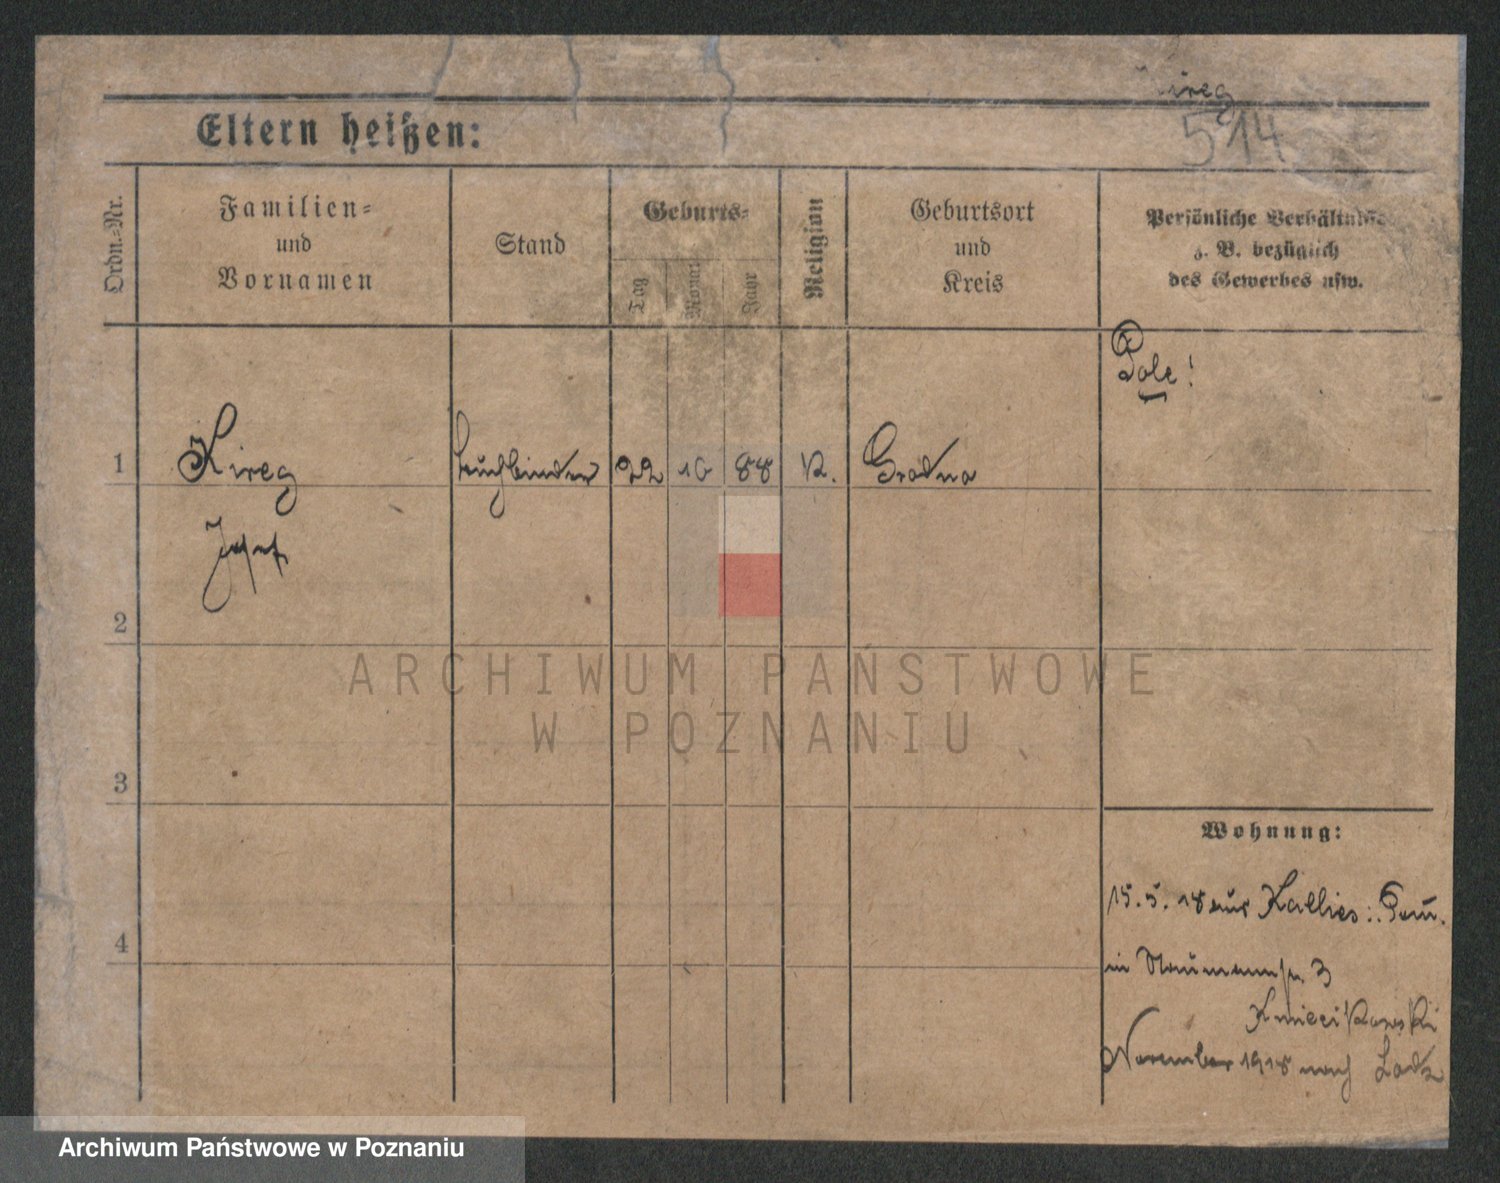 Kireg
514
Eltern heißen:
Ordn.-Nr.
Familien-
und
Vornamen
Stand
Geburts-
Tag
Monat
Jahr
Religion
Geburtsort
und
Kreis
Persönliche Verhältnisse
z. B. bezüglich
des Gewerbes usw.
Pole!
1 Kireg 22 10 88 K. Grodno
Josef
2
3
4
Wohnung:
15. 5. 18 aus Kallies : Pom.
in Naumannstr 3
Kmiecikowski
November 1918 nach Lodz
ARCHIWUM PAŃSTWOWE
W POZNANIU
Archiwum Państwowe w Poznaniu